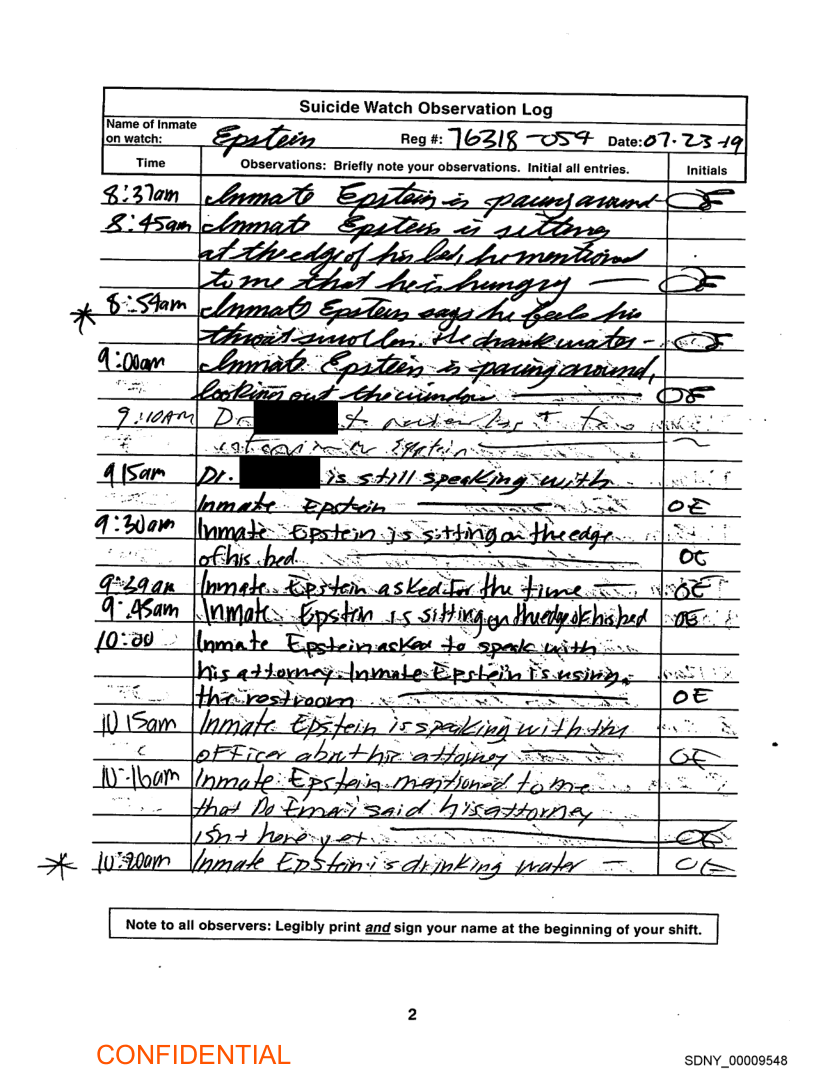 Suicide Watch Observation Log
Name of Inmate on watch: Epstein Reg #: 76318-054 Date: 07-23-19
Time Observations: Briefly note your observations. Initial all entries. Initials
8:37am Inmate Epstein is pacing around OE
8:45am Inmate Epstein is sitting
at the edge of his bed, he mentioned
to me that he is hungry OE
* 8:54am Inmate Epstein says he feels his
throat swollen. He drank water - OE
9:00am Inmate Epstein is pacing around,
looking out the window OE
9:10AM Dr.
Epstein
9 15am Dr. is still speaking with
Inmate Epstein OE
9:30am Inmate Epstein is sitting on the edge
of his bed OE
9:39am Inmate Epstein asked for the time OE
9:45am Inmate Epstein is sitting on the edge of his bed OE
10:00 Inmate Epstein asked to speak with
his attorney. Inmate Epstein is using
the restroom OE
10 15am Inmate Epstein is speaking with the
officer about his attorney OE
10:16am Inmate Epstein mentioned to me
that said his attorney
isn't here yet OE
* 10:20am Inmate Epstein is drinking water - OE
Note to all observers: Legibly print and sign your name at the beginning of your shift.
2
CONFIDENTIAL
SDNY_00009548